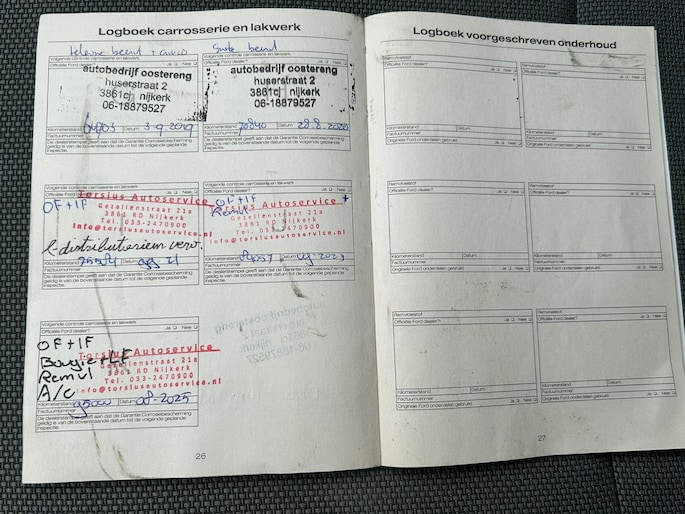 Logboek carrosserie en lakwerk
beurt
Volgende controle carrosserie en lakwerk
Officiële Ford dealer? Ja Nee
autobedrijf oostereng
huserstraat 2
3861cj nijkerk
06-18879527
Kilometerstand Datum 3-9-2019
Factuurnummer
De dealerstempel geeft aan dat de Garantie Corrosiebescherming
geldig is van de bovenstaande datum tot de volgende geplande
inspectie.
beurt
Volgende controle carrosserie en lakwerk
Officiële Ford dealer? Ja Nee
autobedrijf oostereng
huserstraat 2
3861cj nijkerk
06-18879527
Kilometerstand 70840 Datum 28.8.2020
Factuurnummer
De dealerstempel geeft aan dat de Garantie Corrosiebescherming
geldig is van de bovenstaande datum tot de volgende geplande
inspectie.
Volgende controle carrosserie en lakwerk
Officiële Ford dealer? Ja Nee
OF+IF
Torsius Autoservice
Gezellenstraat 21a
3861 RD Nijkerk
Tel. 033-2470900
info@torsiusautoservice.nl
distributieriem verv.
Kilometerstand Datum
Factuurnummer
De dealerstempel geeft aan dat de Garantie Corrosiebescherming
geldig is van de bovenstaande datum tot de volgende geplande
inspectie.
Volgende controle carrosserie en lakwerk
Officiële Ford dealer? Ja Nee
OF+IF +
Remvl
Torsius Autoservice
Gezellenstraat 21a
3861 RD Nijkerk
Tel. 033-2470900
info@torsiusautoservice.nl
Kilometerstand Datum
Factuurnummer
De dealerstempel geeft aan dat de Garantie Corrosiebescherming
geldig is van de bovenstaande datum tot de volgende geplande
inspectie.
Volgende controle carrosserie en lakwerk
Officiële Ford dealer? Ja Nee
OF+IF
Bougie+LF
Remvl
A/C
Torsius Autoservice
Gezellenstraat 21a
3861 RD Nijkerk
Tel. 033-2470900
info@torsiusautoservice.nl
Kilometerstand 95000 Datum 08-2025
Factuurnummer
De dealerstempel geeft aan dat de Garantie Corrosiebescherming
geldig is van de bovenstaande datum tot de volgende geplande
inspectie.
26
Logboek voorgeschreven onderhoud
Remvloeistof
Officiële Ford dealer? Ja Nee
Kilometerstand Datum
Factuurnummer
Originele Ford onderdelen gebruikt Ja Nee
Remvloeistof
Officiële Ford dealer? Ja Nee
Kilometerstand Datum
Factuurnummer
Originele Ford onderdelen gebruikt Ja Nee
Remvloeistof
Officiële Ford dealer? Ja Nee
Kilometerstand Datum
Factuurnummer
Originele Ford onderdelen gebruikt Ja Nee
Remvloeistof
Officiële Ford dealer? Ja Nee
Kilometerstand Datum
Factuurnummer
Originele Ford onderdelen gebruikt Ja Nee
Remvloeistof
Officiële Ford dealer? Ja Nee
Kilometerstand Datum
Factuurnummer
Originele Ford onderdelen gebruikt Ja Nee
Remvloeistof
Officiële Ford dealer? Ja Nee
Kilometerstand Datum
Factuurnummer
Originele Ford onderdelen gebruikt Ja Nee
27